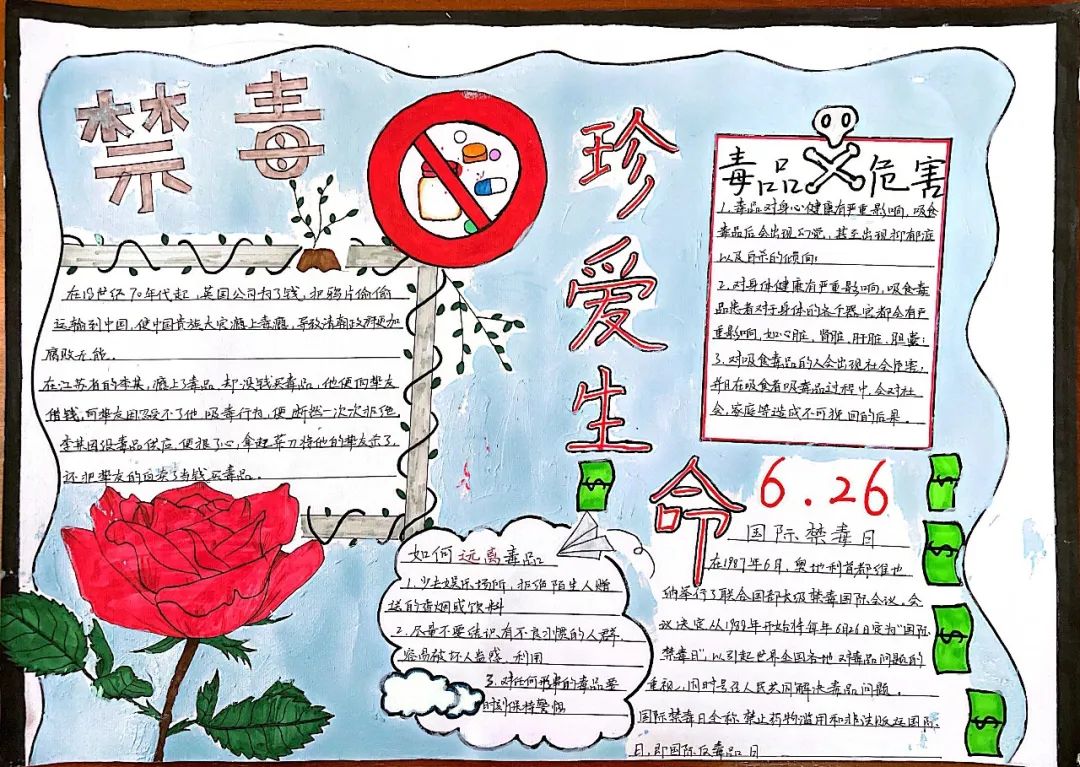 禁毒
珍爱生命
在18世纪70年代起，英国公司为了钱，把鸦片偷偷
运输到中国，使中国贵族大臣瘾上毒瘾，导致清朝政府更加
腐败无能。
在江苏省的李某，瘾上了毒品，却没钱买毒品，他便向挚友
借钱，可挚友因受不了他吸毒行为，便断然一次次拒绝，
李某因没毒品供应，便狠了心，拿起菜刀将他的挚友杀了，
还把挚友的
当钱买毒品。
毒品危害
1、毒品对身心健康有严重影响，吸食
毒品后会出现幻觉，甚至出现抑郁症
以及自杀的倾向；
2、对身体健康有严重影响，吸食毒
品患者对于身体的各个器官都会有严
重影响，如心脏，肾脏，肝脏，胆囊；
3、对吸食毒品的人会出现社会危害，
并且在吸食者吸毒品过程中，会对社
会，家庭等造成不可挽回的后果。
如何远离毒品
1、少去娱乐场所，拒绝陌生人赠
送的香烟或饮料
2、尽量不要结识有不良习惯的人群，
容易被坏人蛊惑、利用
3、对任何形式的毒品要
时刻保持警惕
6.26
国际禁毒日
在1987年6月，奥地利首都维也
纳举行了联合国部长级禁毒国际会议，会
议决定从1989年开始将每年6月26日定为“国际
禁毒日”，以引起世界各国各地对毒品问题的
重视，同时号召人民共同解决毒品问题。
国际禁毒日全称禁止药物滥用和非法贩运国际
日，即国际反毒品日